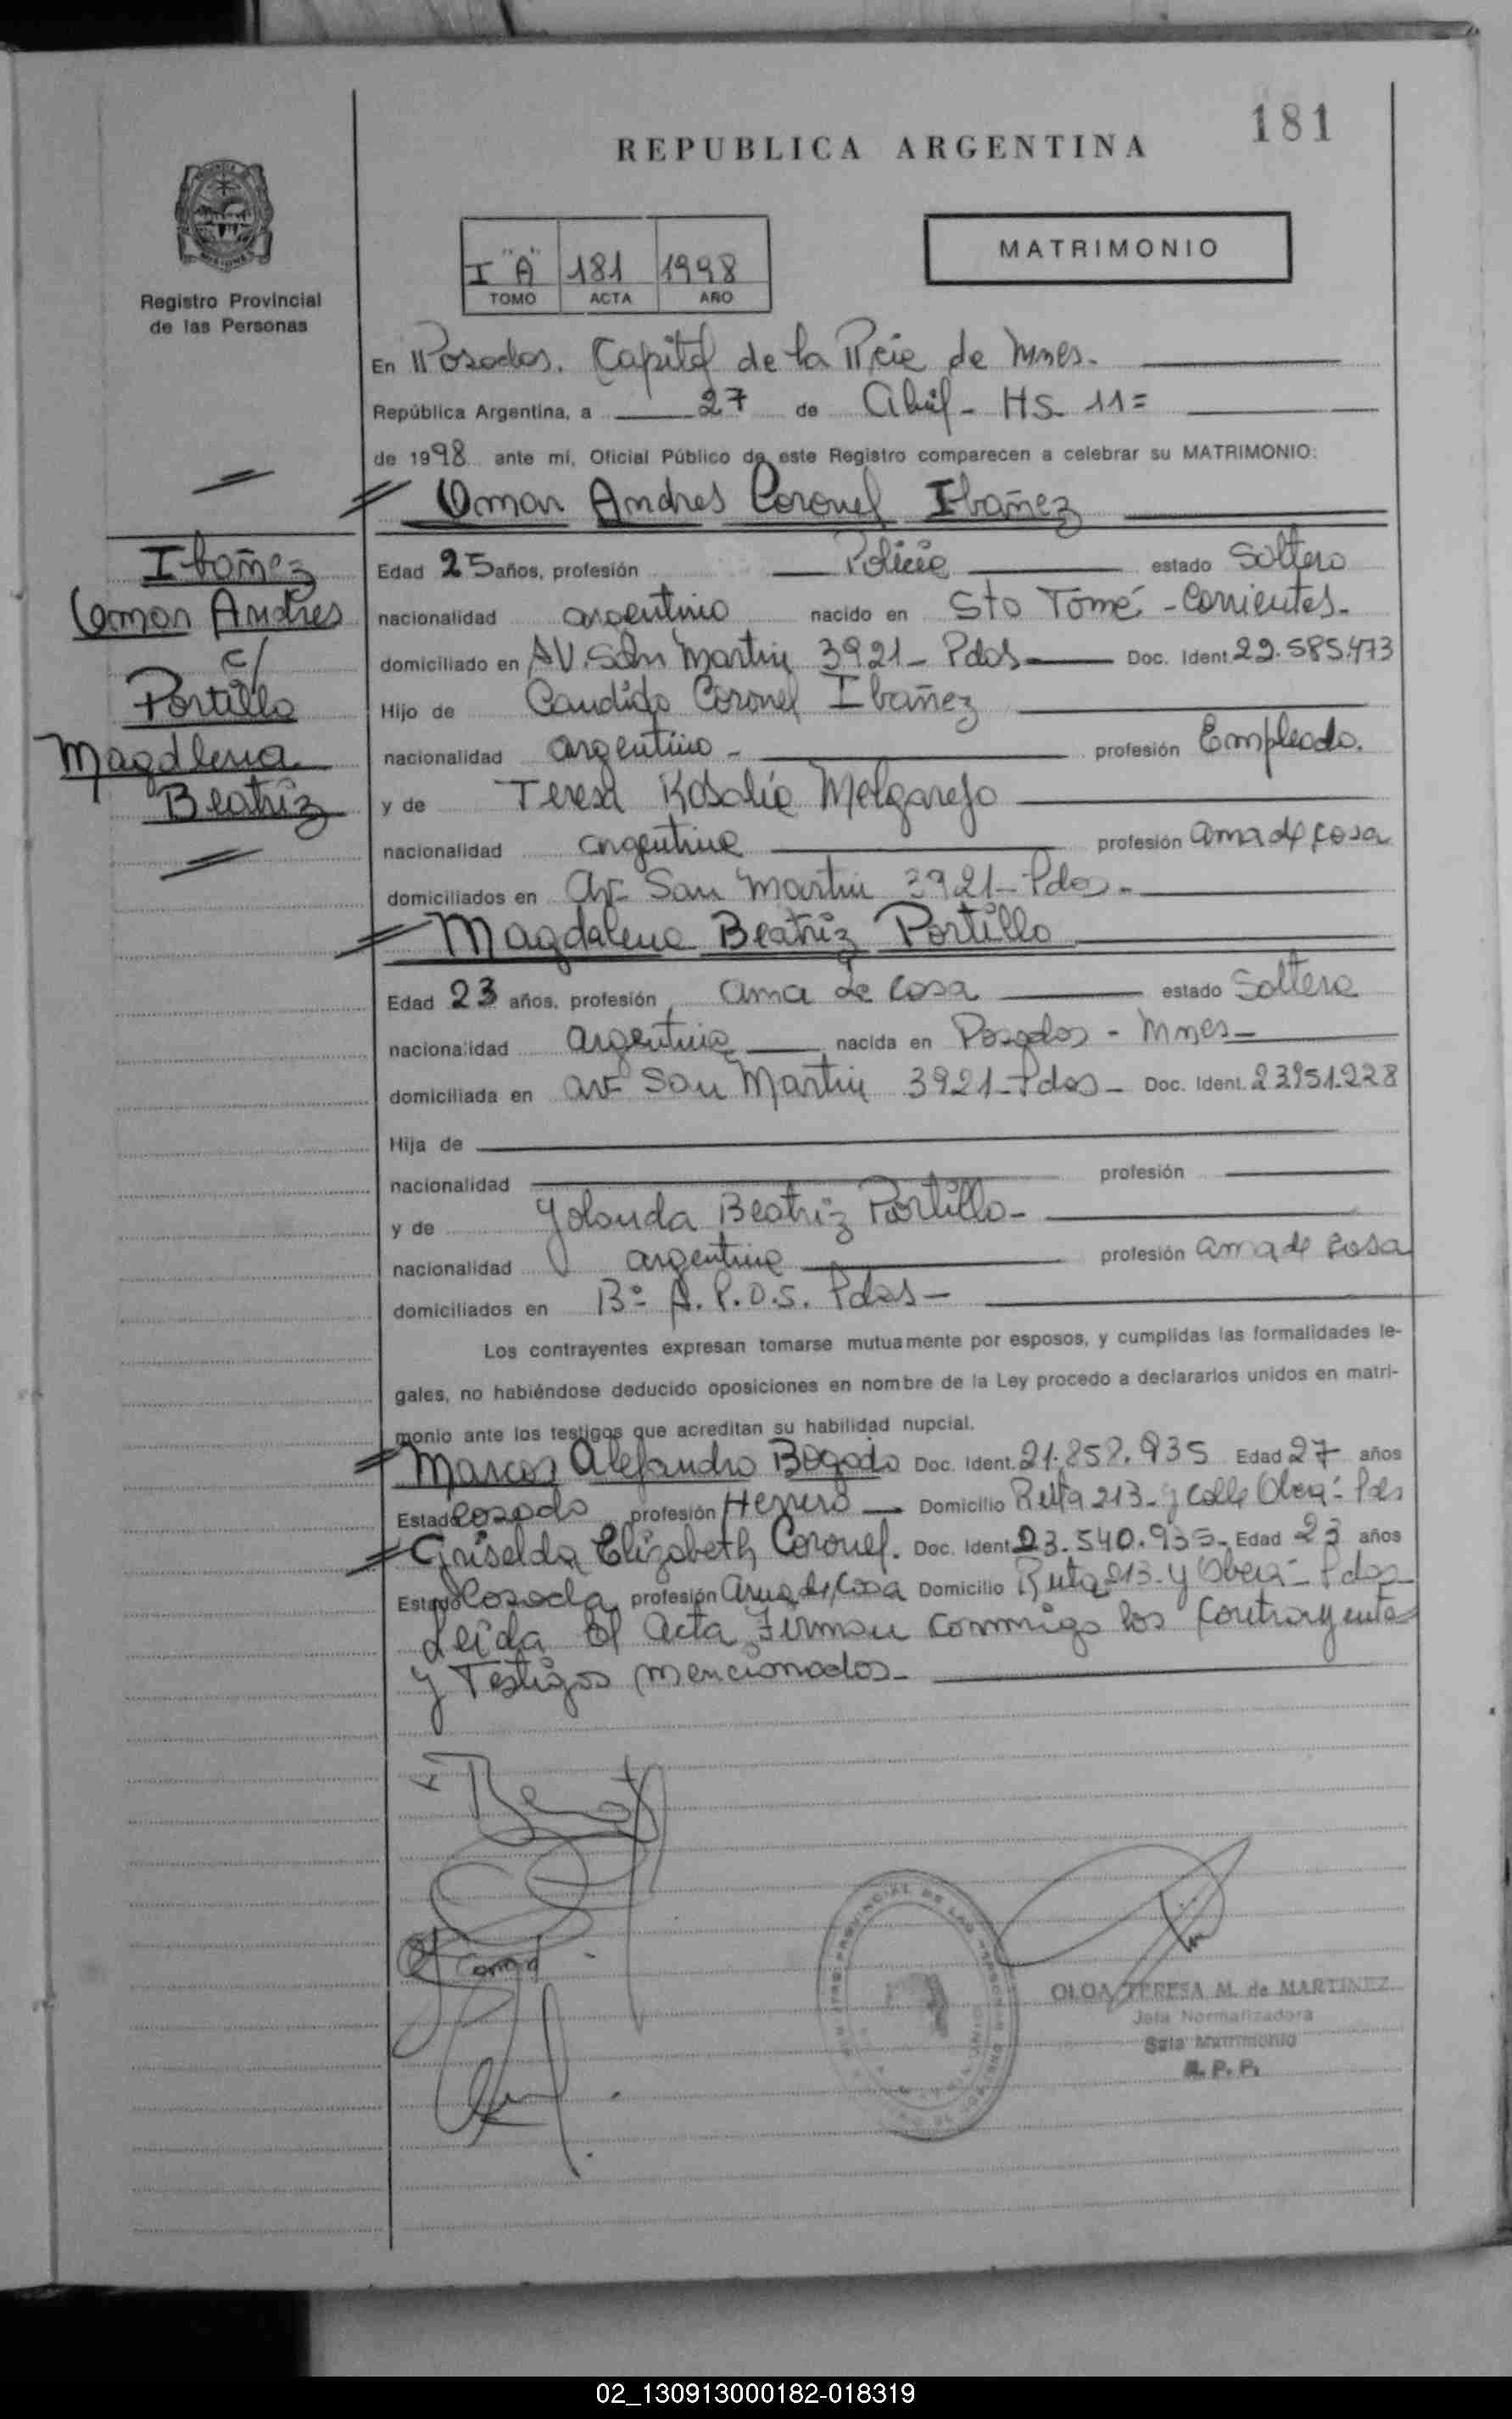 181
REPUBLICA ARGENTINA
MATRIMONIO
I "A" 181 1998
TOMO ACTA AÑO
Registro Provincial
de las Personas
En Posadas. Capital de la Pcia de Mnes.
República Argentina, a 27 de Abril - Hs 11=
de 1998 ante mí, Oficial Público de este Registro comparecen a celebrar su MATRIMONIO:
Omar Andres Coronel Ibañez
Ibañez
Omar Andres
c/
Portillo
Magdlena
Beatriz
Edad 25 años, profesión Policia estado Soltero
nacionalidad argentino nacido en Sto Tomé - Corrientes.
domiciliado en AV. San Martin 3921 - Pdas Doc. Ident. 22.585.473
Hijo de Candido Coronel Ibañez
nacionalidad argentino - profesión Empleado.
y de Teresa Rosalia Melgarejo
nacionalidad argentina profesión ama de casa
domiciliados en Av. San Martin 3921 - Pdas -
Magdalena Beatriz Portillo
Edad 23 años, profesión ama de casa estado Soltera
nacionalidad argentina nacida en Posadas - Mnes -
domiciliada en av San Martin 3921 - Pdas - Doc. Ident. 23951.228
Hija de
nacionalidad profesión
y de Yolanda Beatriz Portillo -
nacionalidad argentina profesión ama de casa
domiciliados en B° A.P.O.S. Pdas -
Los contrayentes expresan tomarse mutuamente por esposos, y cumplidas las formalidades le-
gales, no habiéndose deducido oposiciones en nombre de la Ley procedo a declararlos unidos en matri-
monio ante los testigos que acreditan su habilidad nupcial.
Marcos Alejandro Bogado Doc. Ident. 21.858.935 Edad 27 años
Estado casado profesión Herrero Domicilio Ruta 213 - y calle Obera - Pdas
Griselda Elizabeth Coronel. Doc. Ident. 23.540.935 - Edad 23 años
Estado casada profesión ama de casa Domicilio Ruta 213 - y Obera - Pdas -
Leida el acta, Firman conmigo los contrayentes
y Testigos mencionados -
OLGA TERESA M. de MARTINEZ
Jefa Normalizadora
Sala Matrimonio
R. P. P.
02_130913000182-018319